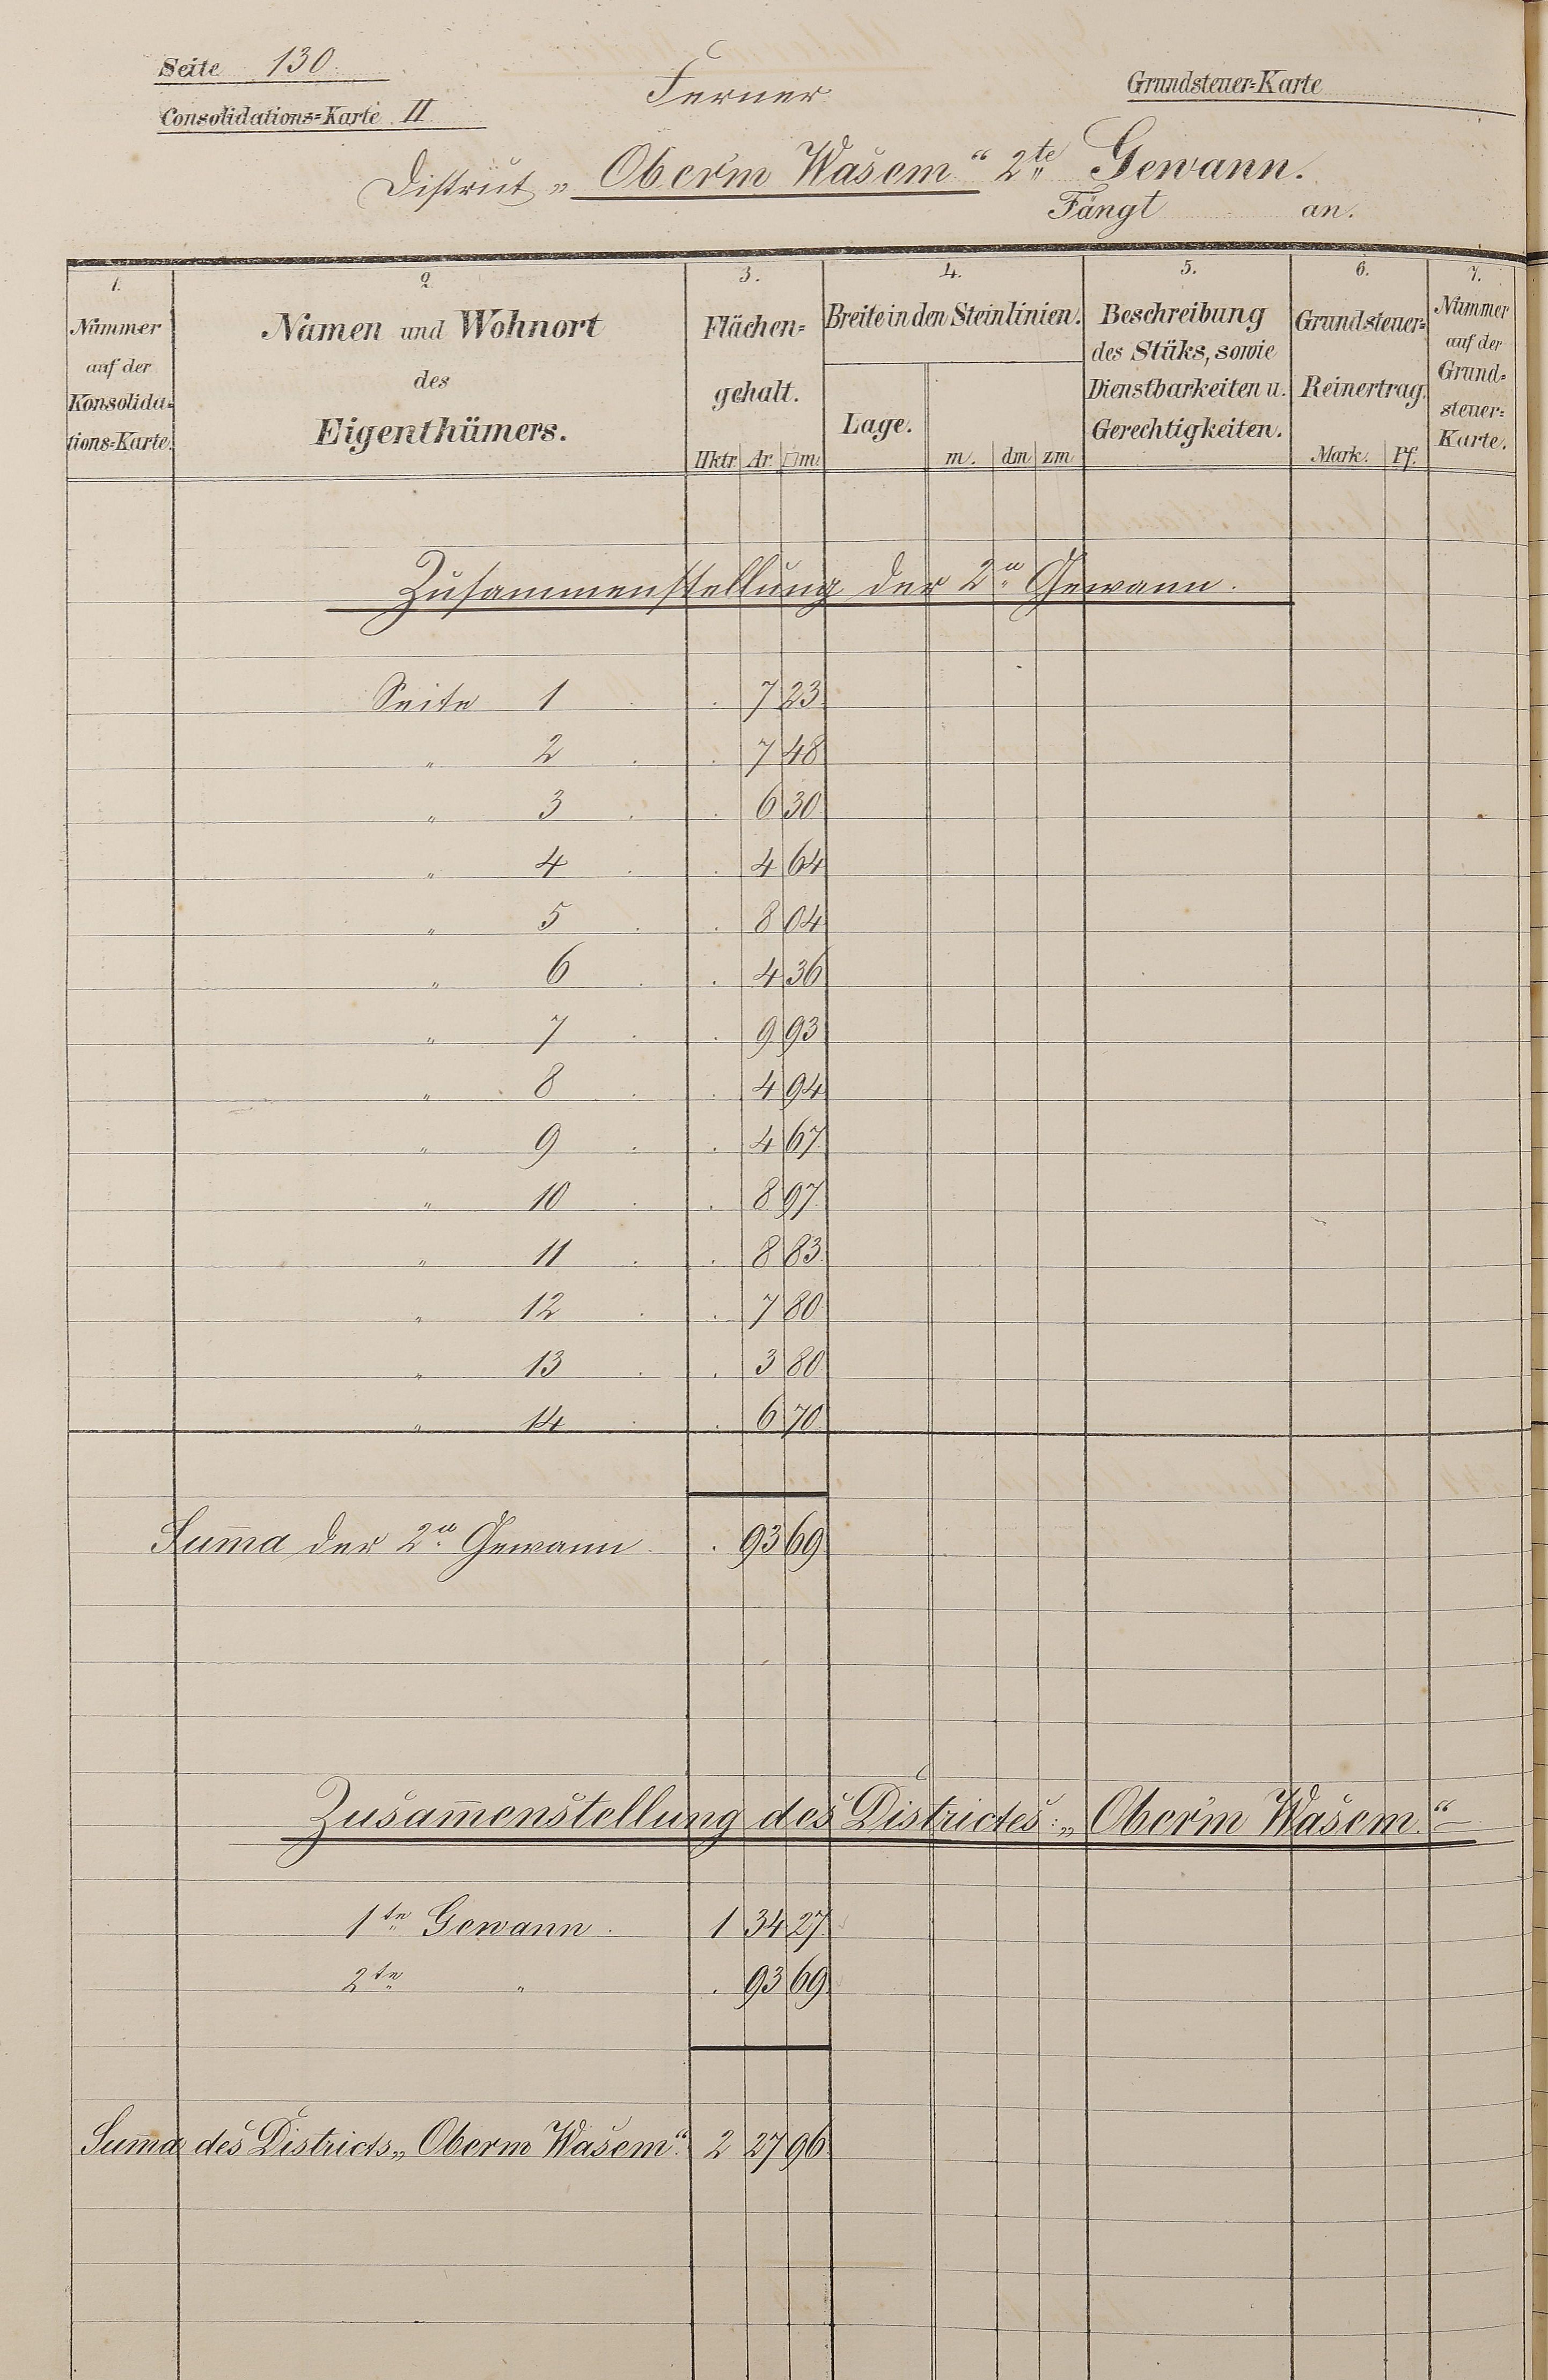 Seite 130.
Consolidations=Karte II
Ferner
Grundsteuer=Karte
District „Oberm Wasem“ 2te Gewann.
Fängt an.
1. 2. 3. 4. 5. 6. 7.
Nummer auf der Konsolida=tions=Karte.
Namen und Wohnort
des
Eigenthümers.
Flächen=
gehalt.
Hktr. Ar. □m.
Breite in den Steinlinien.
Lage.
m. dm zm
Beschreibung
des Stüks, sowie
Dienstbarkeiten u.
Gerechtigkeiten.
Grundsteuer=
Reinertrag.
Mark. Pf.
Nummer
auf der
Grund=
steuer=
Karte.
Zusammenstellung der 2n Gewann.
Seite 1 . . 7 23
„ 2 . . 7 48
„ 3 . . 6 30
„ 4 . . 4 64
„ 5 . . 8 04
„ 6 . . 4 36
„ 7 . . 9 93
„ 8 . . 4 94
„ 9 . . 4 67
„ 10 . . 8 97
„ 11 . . 8 83
„ 12 . . 7 80
„ 13 . . 3 80
„ 14 . . 6 70
Suma der 2n Gewann . . 93 69
Zusam̄enstellung des Districtes: „Oberm Wasem“
1te Gewann . 1 34 27
2te „ . 93 69
Sum̄a des Districts „Oberm Wasem“. 2 27 96